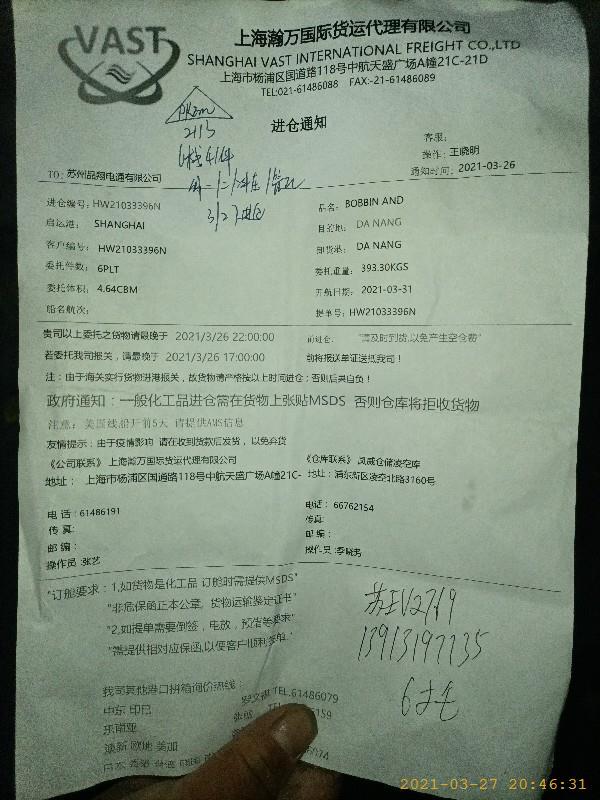 VAST
上海瀚万国际货运代理有限公司
SHANGHAI VAST INTERNATIONAL FREIGHT CO.,LTD
上海市杨浦区国道路118号中航天盛广场A幢21C-21D
TEL:021-61486088 FAX:-21-61486089
进仓通知
2113
客服：
操作：王晓明
通知时间：2021-03-26
TO: 苏州品翔电通有限公司
3/27进仓
进仓编号：HW21033396N
品名：BOBBIN AND
启运港： SHANGHAI
目的地： DA NANG
客户编号：HW21033396N
卸货港： DA NANG
委托件数：6PLT
委托重量：393.30KGS
委托体积：4.64CBM
开航日期：2021-03-31
船名航次：
提单号：HW21033396N
贵司以上委托之货物请最晚于 2021/3/26 22:00:00 前进仓： "请及时到货,以免产生空仓费"
若委托我司报关，请最晚于 2021/3/26 17:00:00 前将报送单证送抵我司！
注：由于海关实行货物进港报关，故货物请严格按以上时间进仓；否则后果自负！
政府通知：一般化工品进仓需在货物上张贴MSDS 否则仓库将拒收货物
注意：美国线船开前5天 请提供AMS信息
友情提示：由于疫情影响 请在收到货款后发货，以免弃货
《公司联系》上海瀚万国际货运代理有限公司
《仓库联系》 凤威仓储凌空库
地址： 上海市杨浦区国通路118号中航天盛广场A幢21C-
地址：浦东新区凌空北路3160号
电话：61486191
电话：66762154
传真：
传真:
邮编：
邮编：
操作员:张艺
操作员:李晓勇
"订舱要求：1,如货物是化工品 订舱时需提供MSDS"
"非危保函正本公章，货物运输鉴定证书"
"2,如提单需要倒签，电放，预借等要求"
"需提供相对应保函,以便客户顺利签单."
苏EV2769
13913197735
6托
我司其他港口拼箱询价热线：
中东 印巴
TEL.61486079
东南亚
TEL
6159
澳新 欧地 美加
6074
2021-03-27 20:46:31